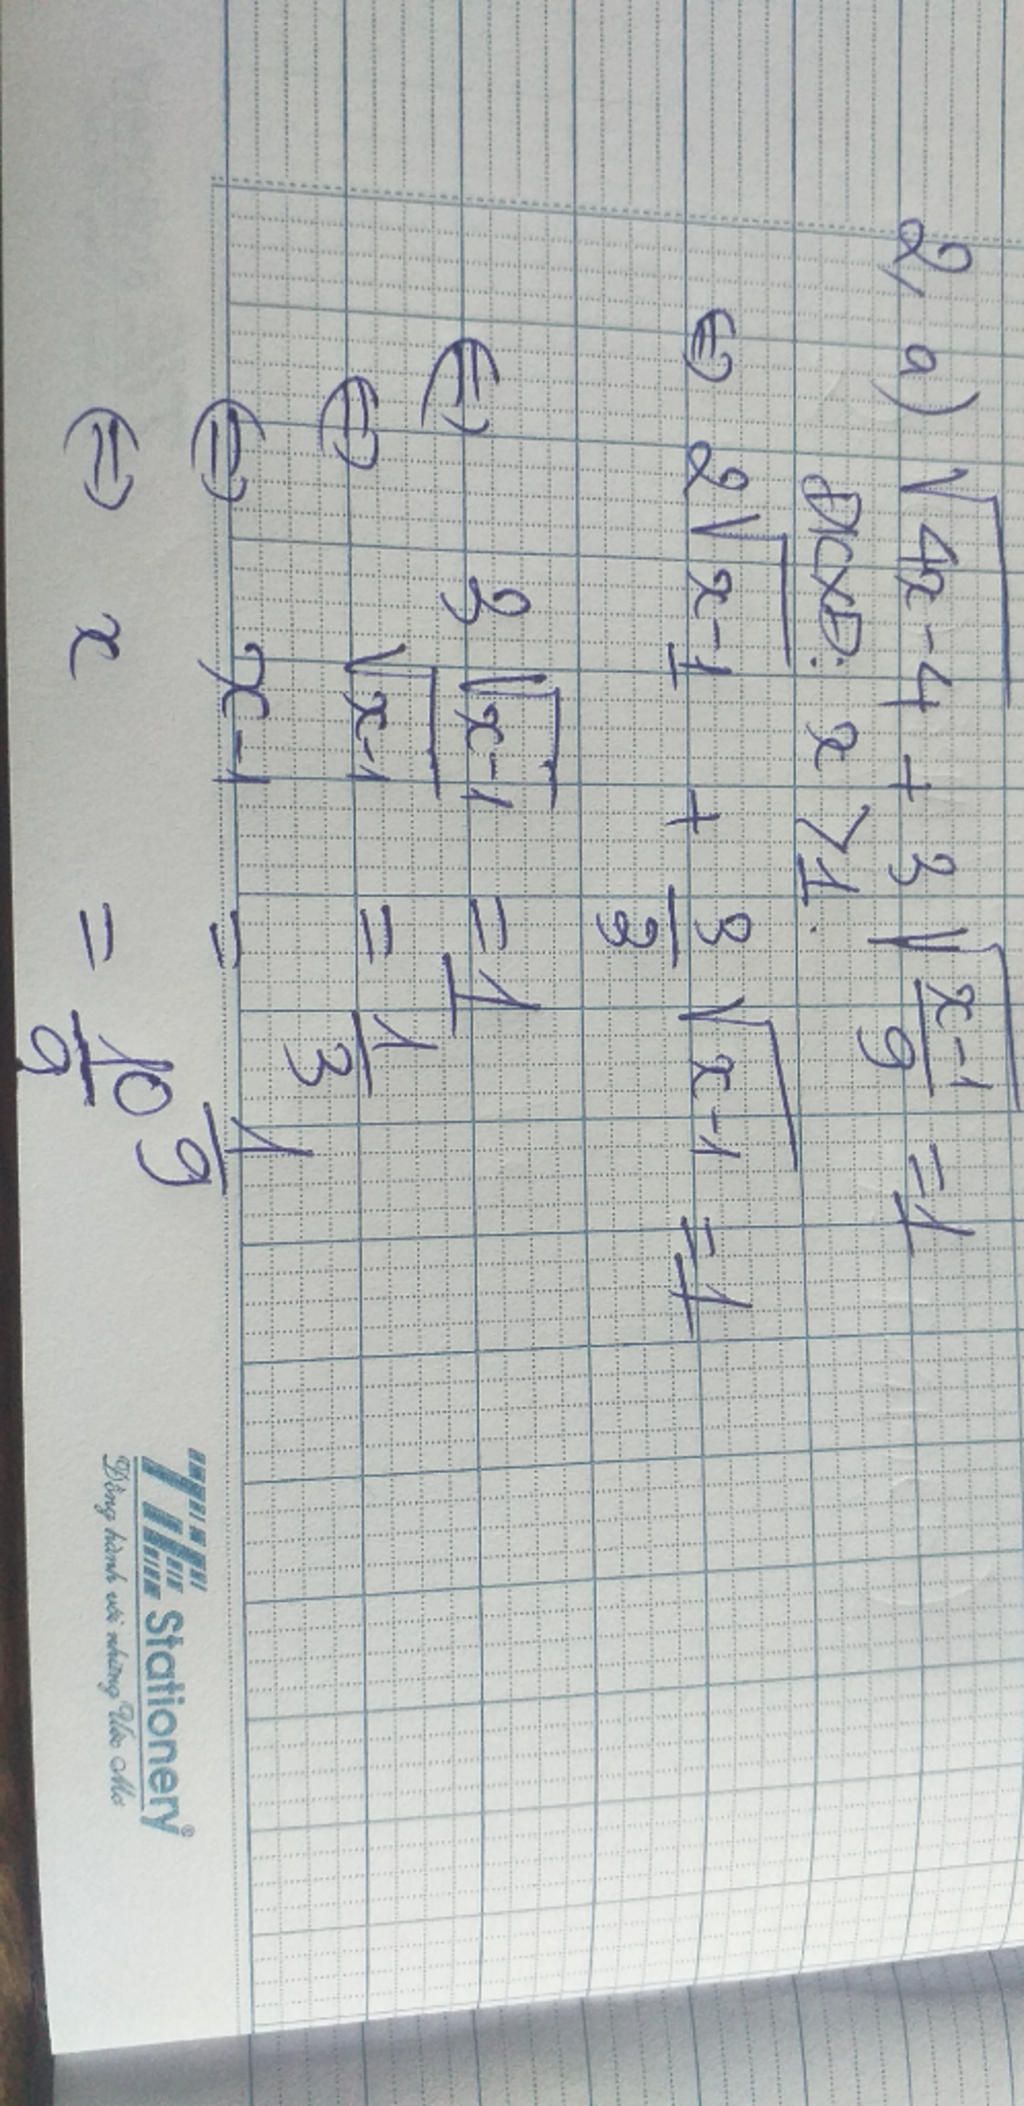 2, a) √(4x-4) + 3√((x-1)/9) = 1
ĐKXĐ: x ≥ 1.
⇔ 2√(x-1) + 3/3 √(x-1) = 1
⇔ 3√(x-1) = 1
⇔ √(x-1) = 1/3
⇔ x-1 = 1/9
⇔ x = 10/9
TL Stationery®
Đồng hành với những Ước Mơ